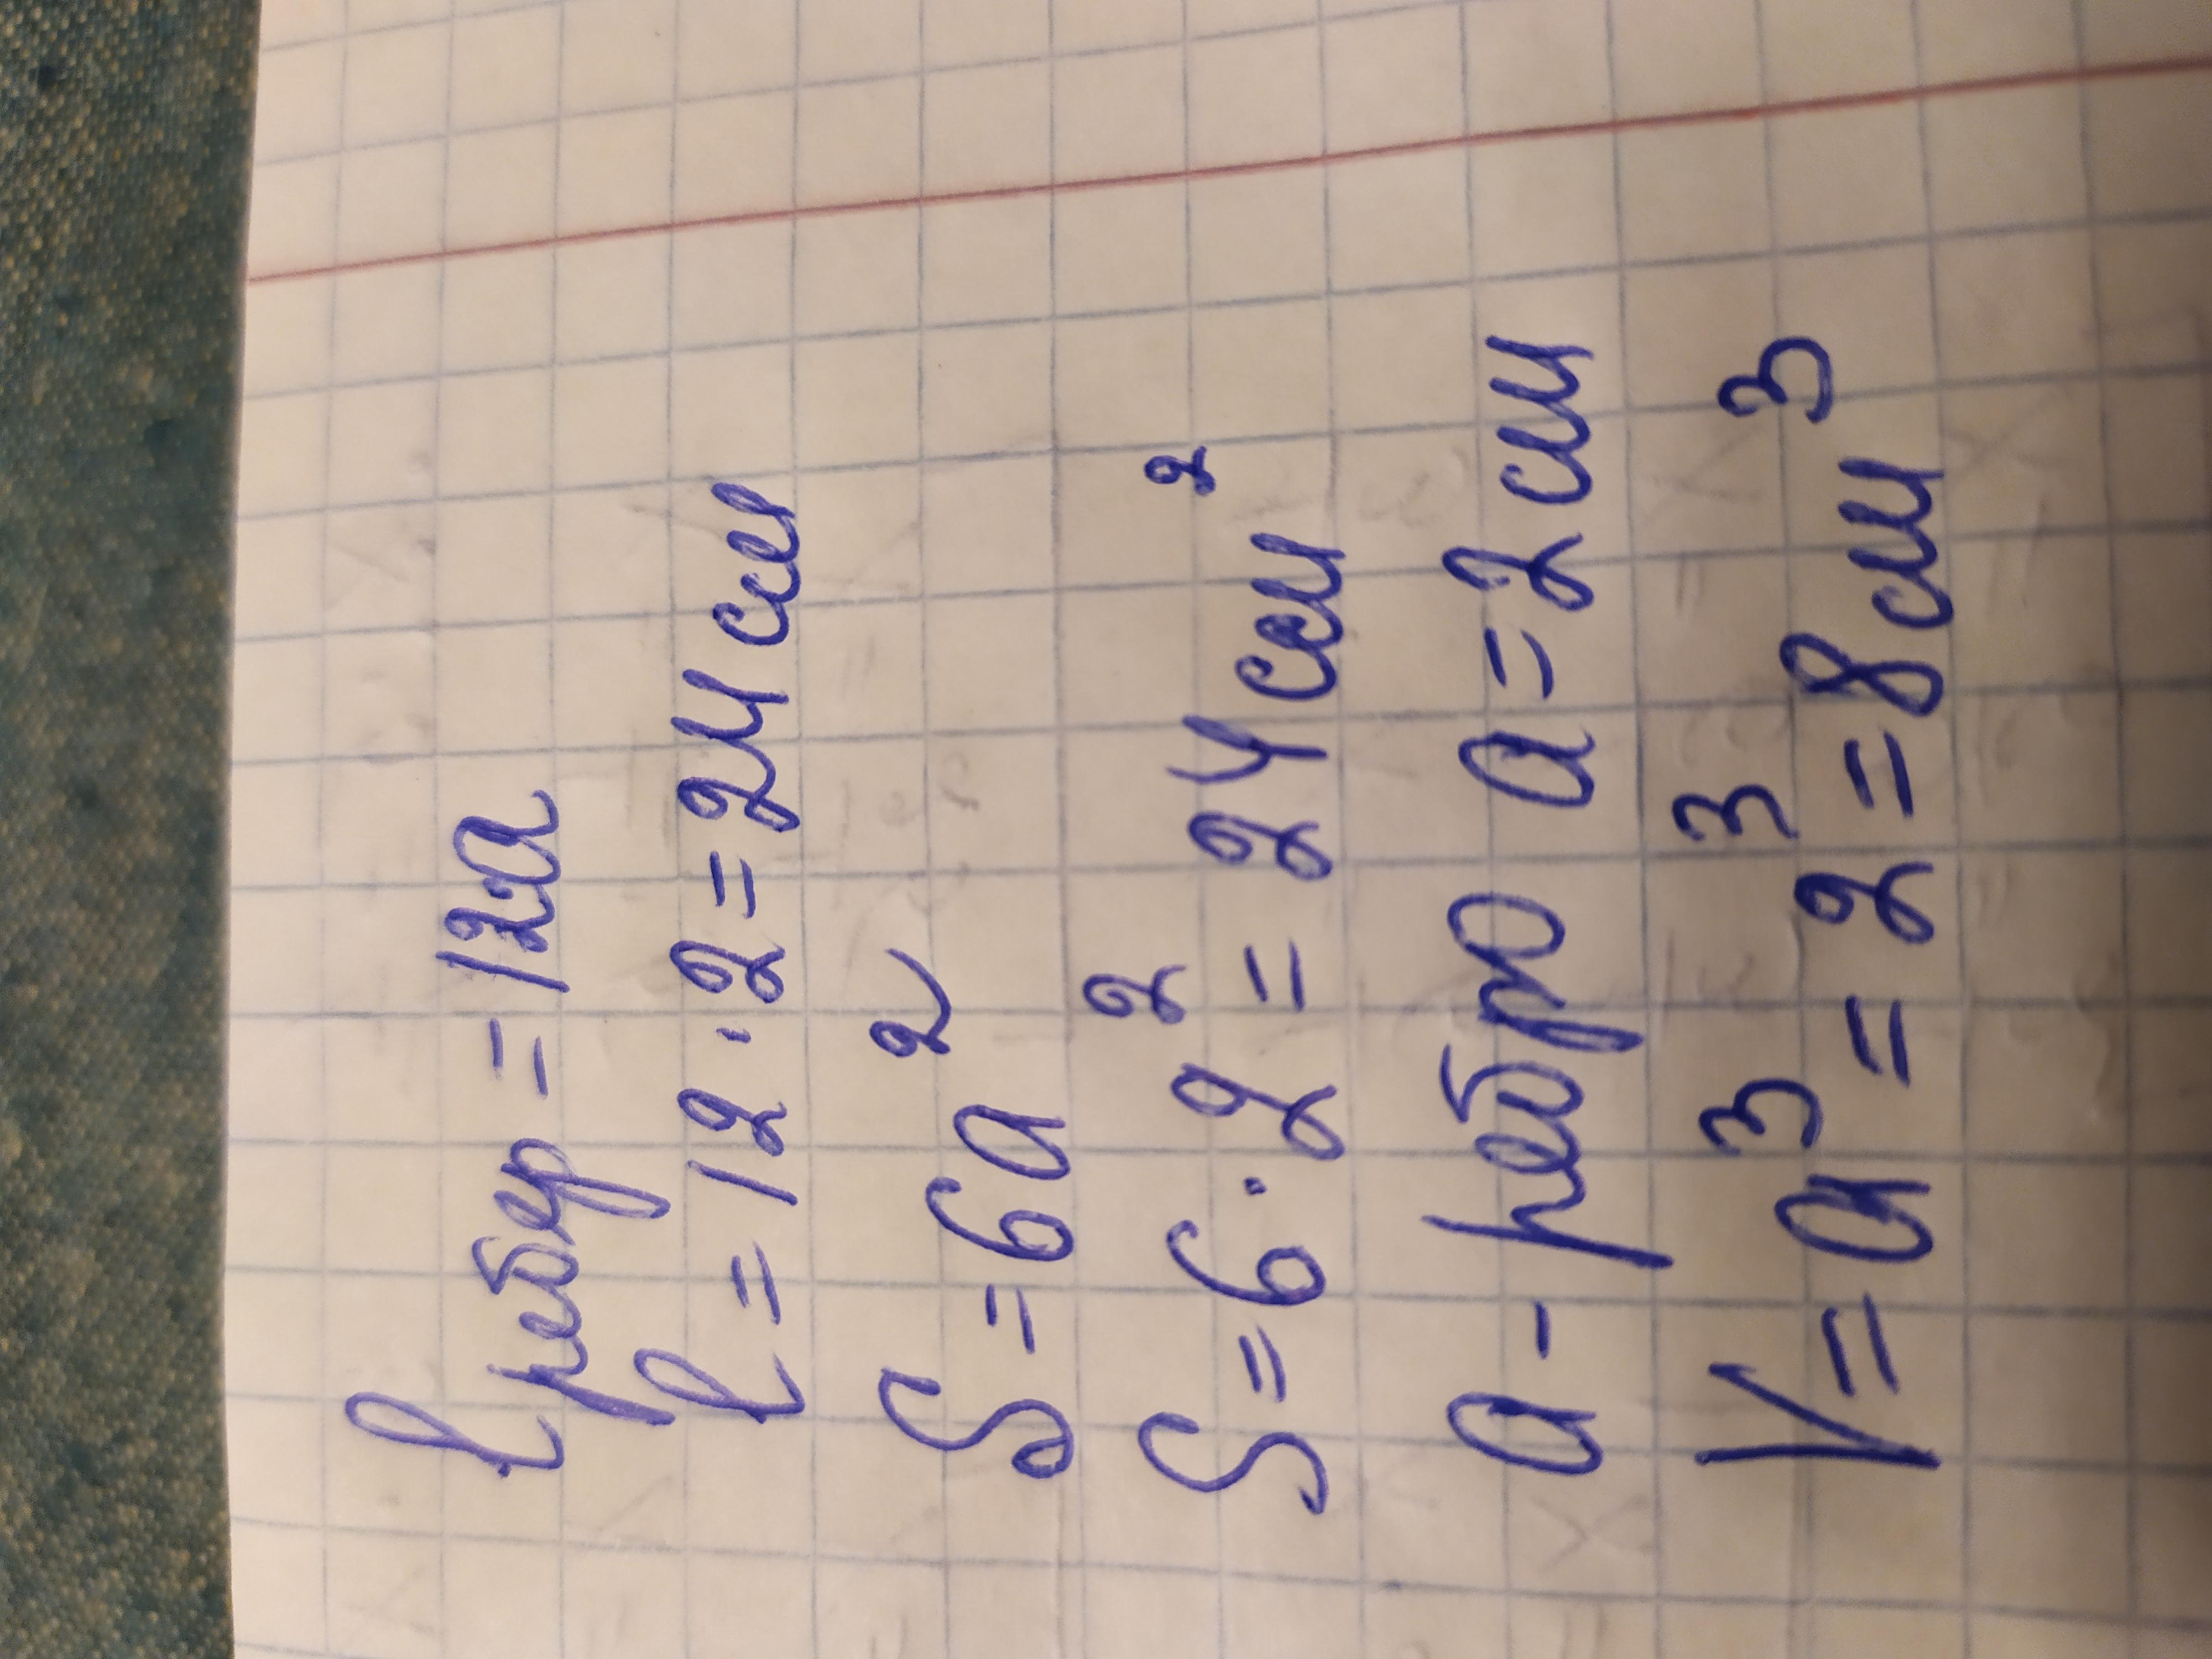 l ребер = 12a
l = 12 · 2 = 24 см
S = 6a²
S = 6 · 2² = 24 см²
a - ребро a = 2 см
V = a³ = 2³ = 8 см³